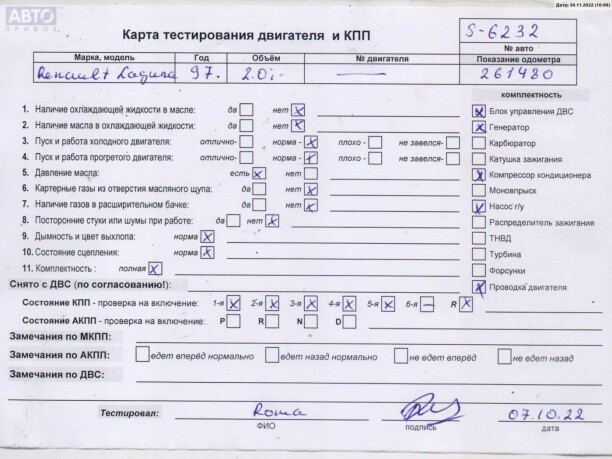 АВТО
ПРИВОЗ
Дата: 30.11.2022 (10:06)
Карта тестирования двигателя и КПП
S-6232
№ авто
Марка, модель Год Объём № двигателя Показание одометра
Renault Laguna 97. 2.0i 261480
комплектность
1. Наличие охлаждающей жидкости в масле: да нет x
Блок управления ДВС x
2. Наличие масла в охлаждающей жидкости: да нет x
Генератор x
3. Пуск и работа холодного двигателя: отлично- норма - x плохо - не завелся-
Карбюратор
4. Пуск и работа прогретого двигателя: отлично- норма - x плохо - не завелся-
Катушка зажигания
5. Давление масла: есть x нет
Компрессор кондиционера x
6. Картерные газы из отверстия масляного щупа: да нет x
Моновпрыск
7. Наличие газов в расширительном бачке: да нет x
Насос г/у x
8. Посторонние стуки или шумы при работе: да нет x
Распределитель зажигания
9. Дымность и цвет выхлопа: норма x
ТНВД
10. Состояние сцепления: норма x
Турбина
11. Комплектность : полная x
Форсунки
Снято с ДВС (по согласованию!):
Проводка двигателя x
Состояние КПП - проверка на включение: 1-я x 2-я x 3-я x 4-я x 5-я x 6-я – R x
Состояние АКПП - проверка на включение: P R N D
Замечания по МКПП:
Замечания по АКПП: едет вперёд нормально едет назад нормально не едет вперёд не едет назад
Замечания по ДВС:
Тестировал: Roma 07.10.22
ФИО подпись дата